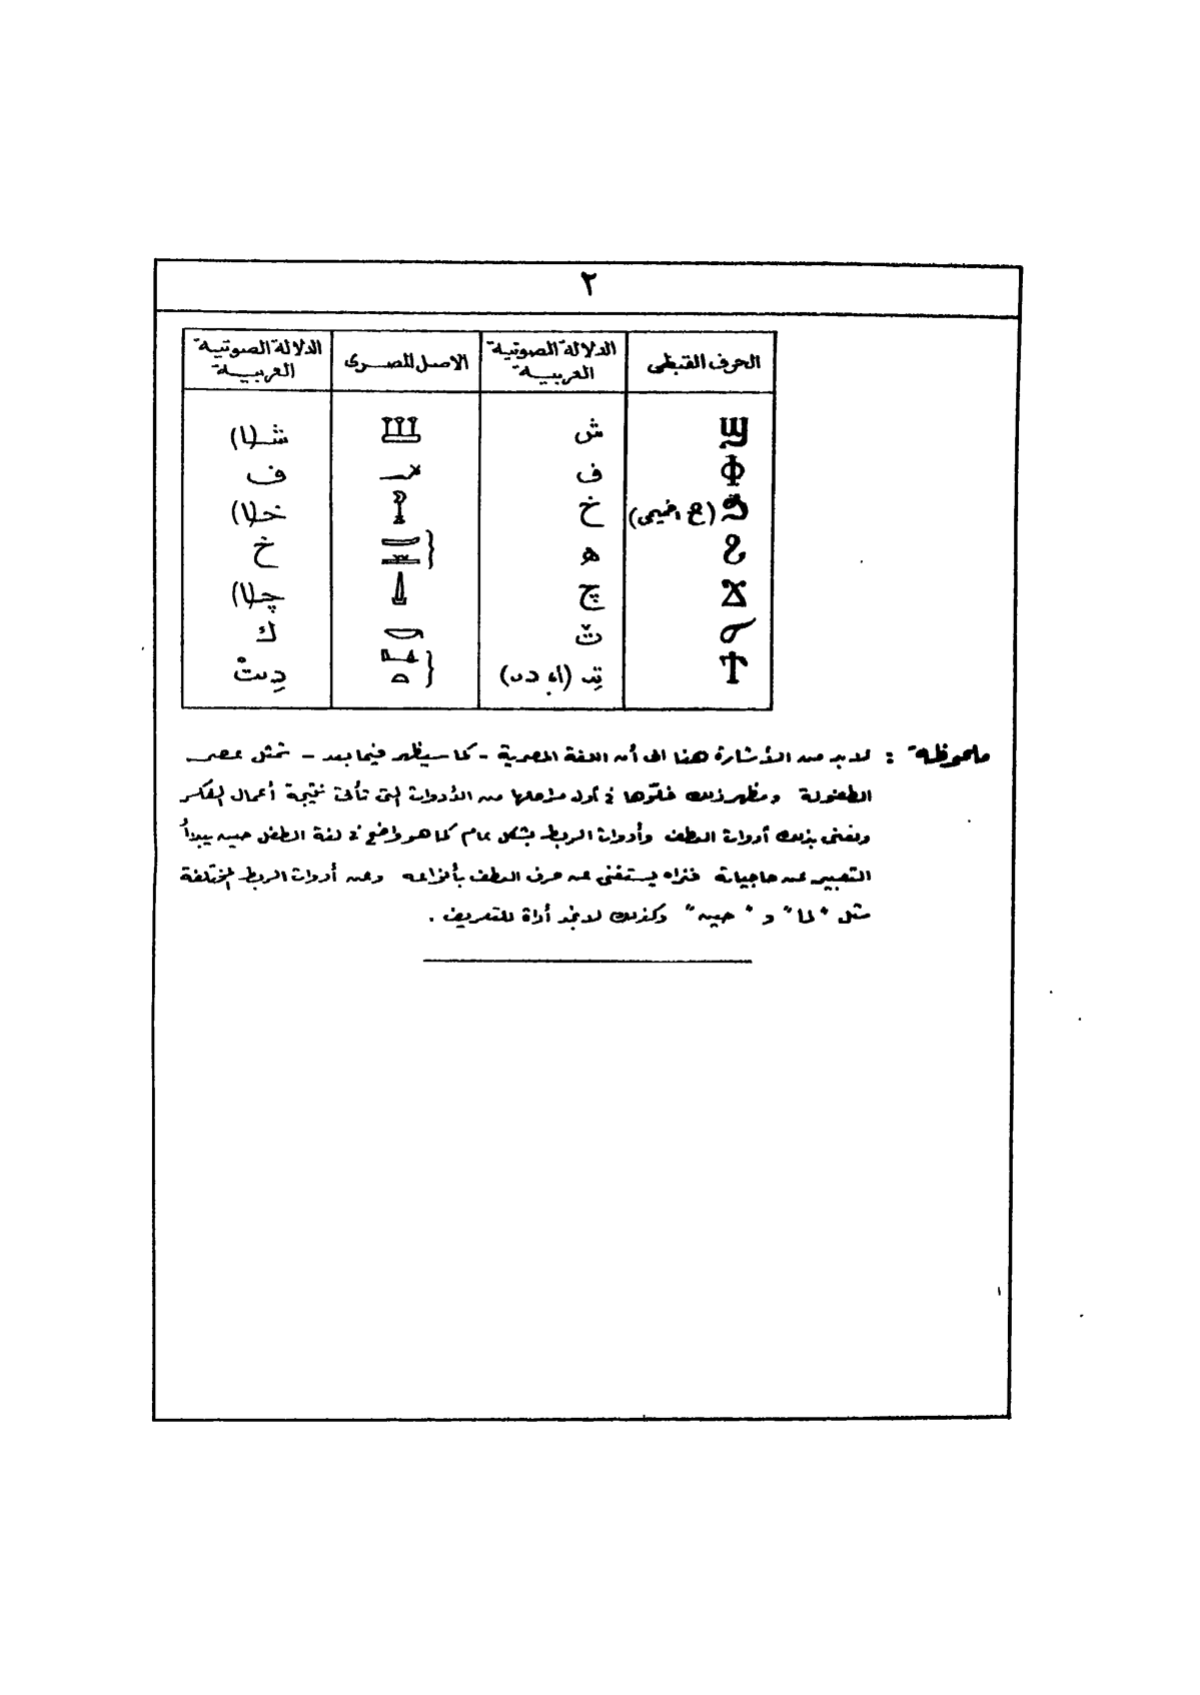 ٢
الحرف القبطى | الدلالة الصوتية العربية | الاصل المصرى | الدلالة الصوتية العربية
ϣ | ش | 𓆷 | شـ(ا)
Ф | ف | 𓆑 | ف
(ح اخميمى) | خ | 𓆼 | خـ(ا)
ϩ | ه | خ
ϫ | چ | 𓍑 | چـ(ا)
ϭ | 𓎡 | ك
ϯ | تِـ | دِت
ملحوظة : لابد من الأشارة هنا الى أن اللغة المصرية - كما سيظهر فيما بعد - تمثل عصر
الطفولة ومظهر ذلك خلوّها فى أول مراحلها من الأدوات التى تأتى نتيجة أعمال الفكر
ونعنى بذلك أدوات العطف وأدوات الربط بشكل عام كما هو واضح فى لغة الطفل حين يبدأ
التعبير عن حاجياته فنراه يستغنى عن حرف العطف بأنواعه وعن أدوات الربط المختلفة
مثل "لما" و "حين" وكذلك لا نجد أداة للتعريف .